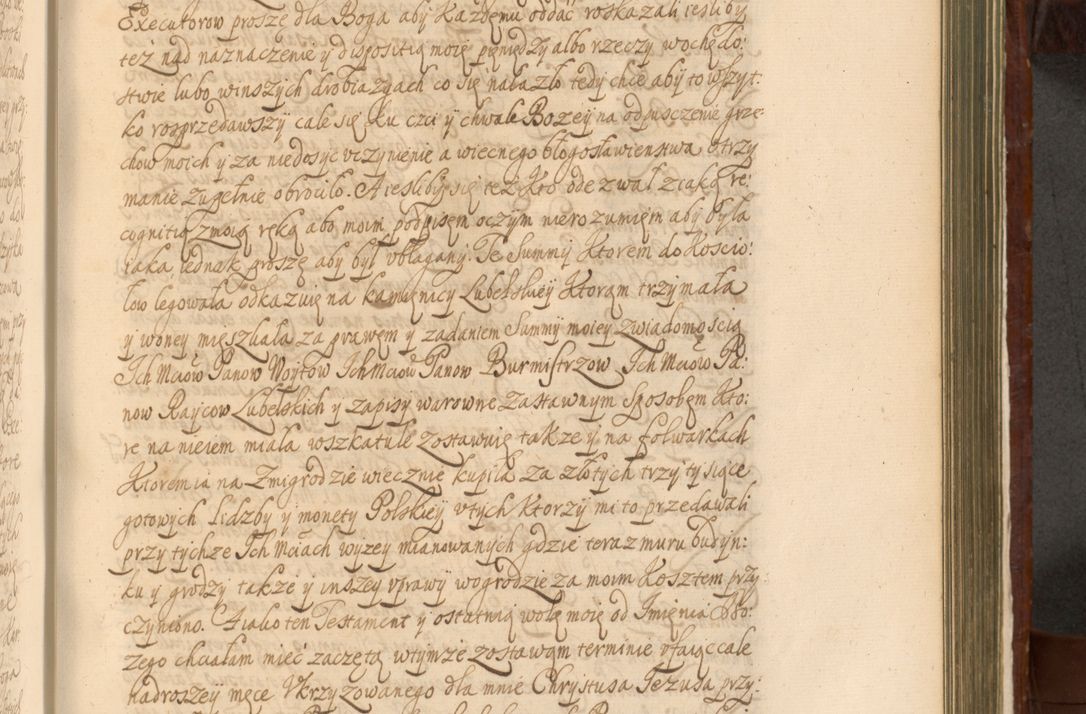 Executorow proszę dla Boga aby każdemu oddać roskazali iesliby
też nad naznaczenie y dispositią moię pięniędzy albo rzeczy wochędo:
stwie lubo winszych drobiazgach co się nalazło tedy chcę aby to wszyt:
ko rosprzedawszy cale się ku czci y chwale Bozey na odpusczenie grze:
chow moich y za niedosyc vczynienie a wiecnego błogosławienstwa otrzy
manie zupełnie obrociło. A iesliby się też kto odezwał ziaką re:
cognitią zmoią ręką abo moim podpisęm oczym nierozumięm aby była
iaka iednak proszę aby był vbłagany. Te Summy ktorem do Koscio:
łow legowała odkazuię na kamięnicy Lubelskiey ktoram trzymała
y woney mięszkała za prawęm y zadaniem Summy moiey zwiadomoscią
Ich Mciow Panow Woytow Ich Mciow Panow Burmistrzow Ich Mciow Pa:
now Raycow Lubelskich y zapisy warowne zastawnym sposobęm kto:
re na nieiem miala wszkatule zostawuię takze y na folwarkach
ktorem ia na Zmigrodzie wiecznie kupiła za złotych trzy tysiące
gotowych lidzby y monety Polskiey vtych ktorzy mi to przedawali
przy tychze Ich Mciach wyzey mianowanych gdzie teraz muru budyn:
ku y grodzy takze y inszey vprawy wogrodzie za moim kosztem przy:
czyniono. A iako ten Testament y ostatnią wolę moię od Imięnia Bo:
zego chciałam mieć zaczętą wtymze zostawam terminie vfaiąc cale
nadroszey męce Vkrzyzowanego dla mnie Chrystusa Jezusa przy: